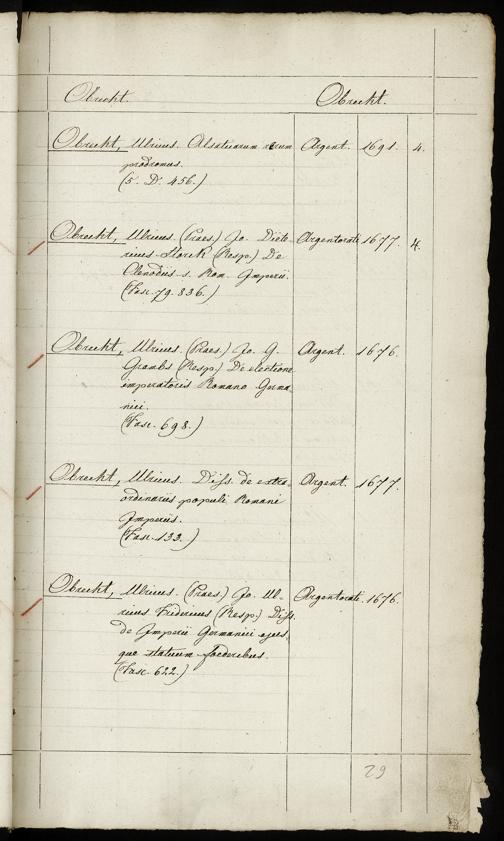 Obrecht. Obrecht.
Obrecht, Ulricus. Alsaticarum rerum Argent. 1691. 4.
prodromus.
(5. D. 456.)
Obrecht, Ulricus. (Praes.) Jo. Diete- Argentorati 1677. 4.
ricus Storck (Resp.) De
Clenodiis s. Rom. Imperii.
(Fasc. 79. 836.)
Obrecht, Ulricus. (Praes.) Jo. G. Argent. 1676.
Grambs (Resp.) De electione
imperatoris Romano Germa-
nici.
(Fasc. 698.)
Obrecht, Ulricus. Diss. de extra- Argent. 1677.
ordinariis populi Romani
Imperiis.
(Fasc. 133.)
Obrecht, Ulricus. (Praes.) Jo. Ul- Argentorati 1676.
ricus Fridericus (Resp.) Diss.
de Imperii Germanici ejus-
que statuum foederibus.
(Fasc. 622.)
29